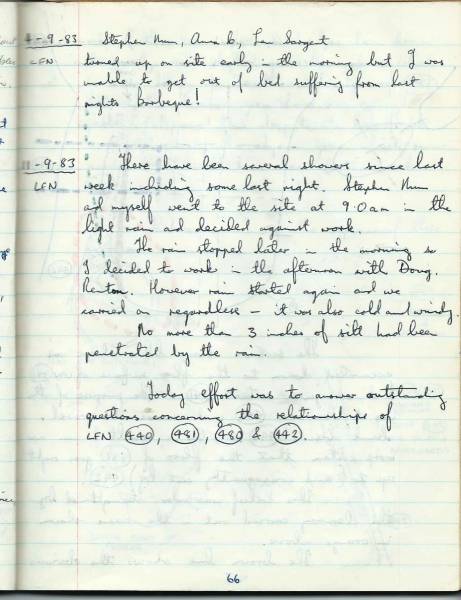 4-9-83 Stephen Nunn, Anna B, Ian Sargent
LFN turned up on site early in the morning but I was
unable to get out of bed suffering from last
nights Barbeque!
11-9-83 There have been several showers since last
LFN week including some last night. Stephen Nunn
and myself went to the site at 9.0 am in the
light rain and decided against work.
The rain stopped later in the morning so
I decided to work in the afternoon with Doug.
Renton. However rain started again and we
carried on regardless – it was also cold and windy.
No more than 3 inches of silt had been
penetrated by the rain.
Today effort was to answer outstanding
questions concerning the relationships of
LFN 440, 481, 480 & 442.
66